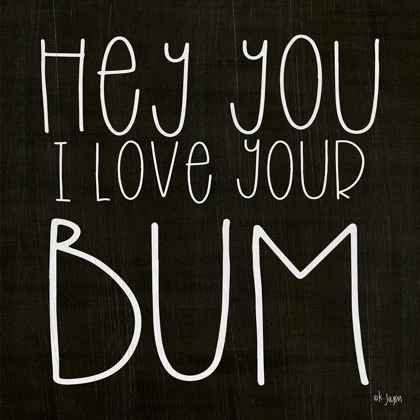 Hey you
I LOVe yOUR
BUM